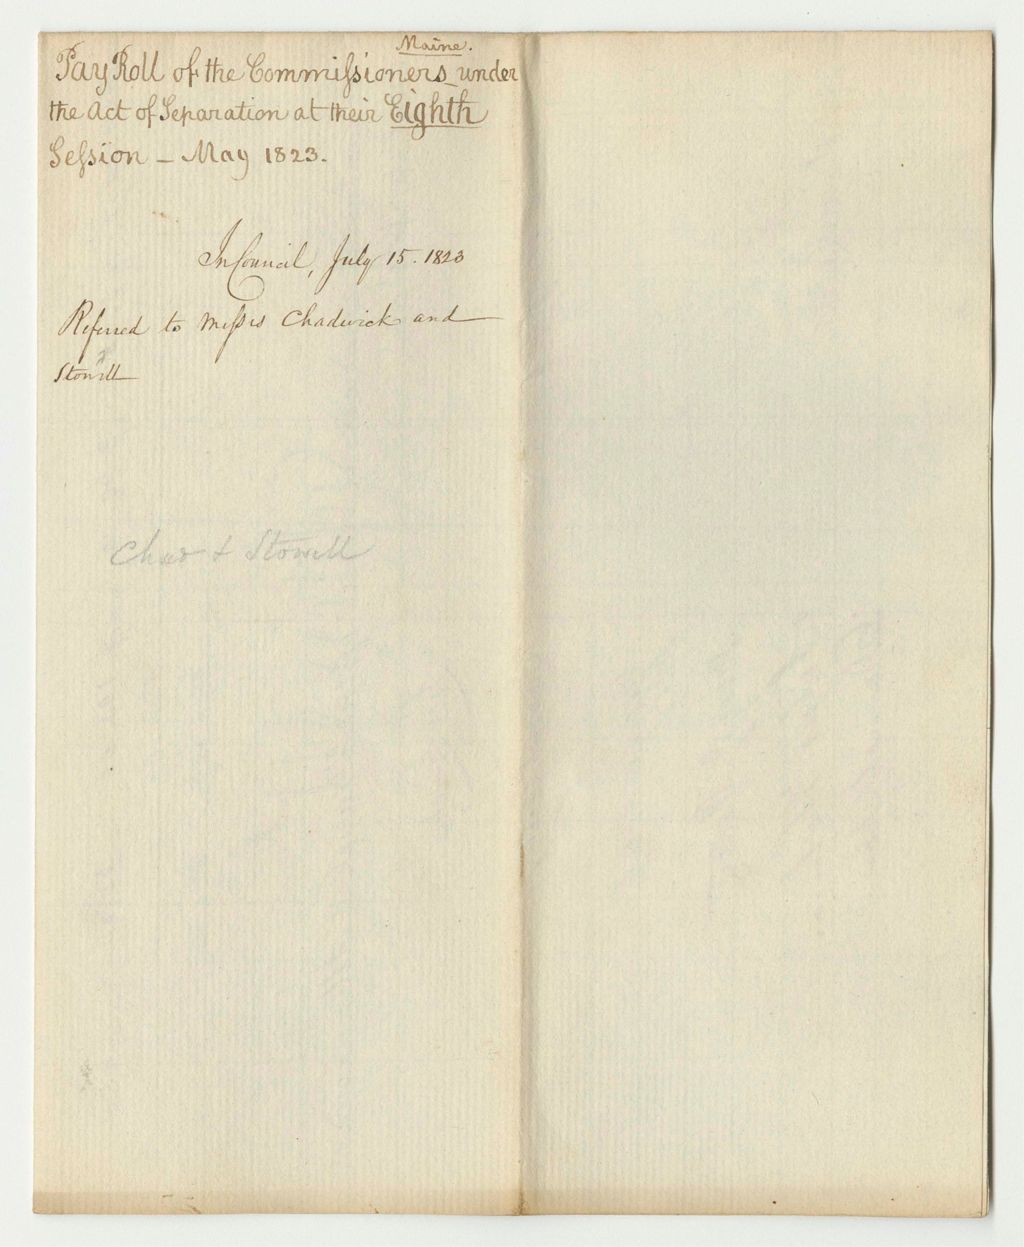 Maine.
Pay Roll of the Commissioners under
the Act of Separation at their Eighth
Session - May 1823.
In Council, July 15. 1823
Referred to Messrs Chadwick and
Stowell
Chad & Stowell